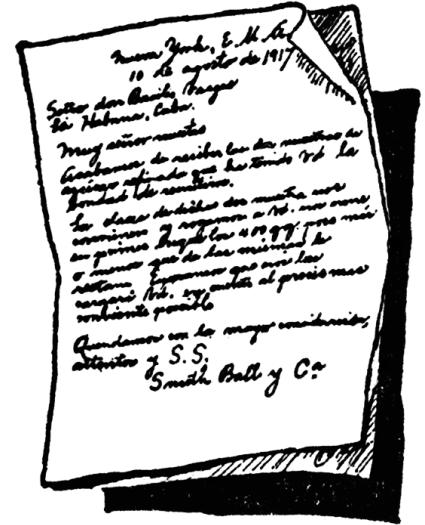 Nueva York, E. U. A.
10 de agosto de 1917
Señor don Basilio Vargas
La Habana, Cuba.
Muy señor nuestro
Acabamos de recibir las dos muestras de
azúcar refinado que ha tenido Vd la
bondad de remitirnos.
La clase de dichas dos muestras nos
conviene y rogamos a Vd. nos mande
en primer lugar los 400 qq. poco más
o menos que de las mismas le
restan. Esperamos que nos las
cargará Vd. en cuenta al precio más
conveniente posible
Quedamos con la mayor consideración,
atentos y S. S.
Smith Ball y Cª